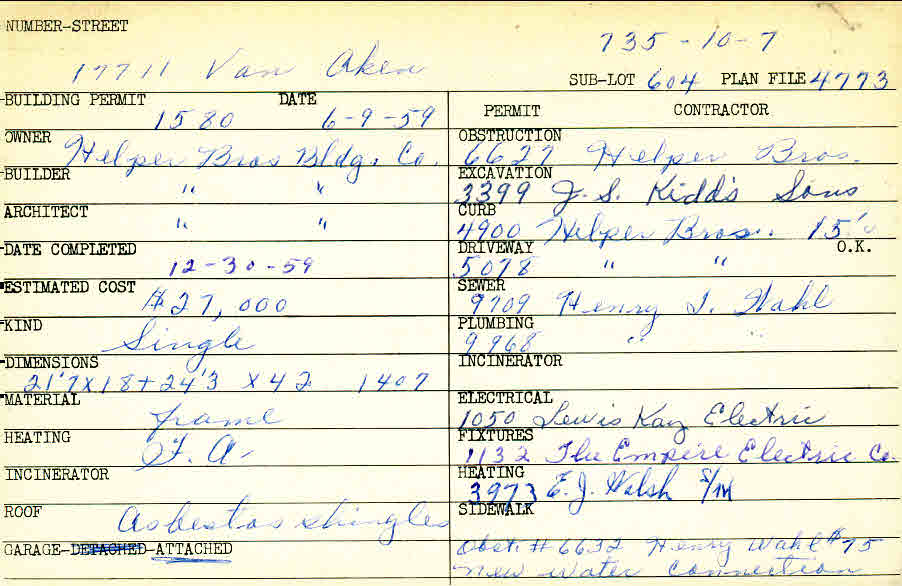 NUMBER-STREET
735-10-7
17711 Van Aken
SUB-LOT 604 PLAN FILE 4773
BUILDING PERMIT DATE
1580 6-9-59
OWNER Helper Bros Bldg. Co.
BUILDER " "
ARCHITECT " "
DATE COMPLETED
12-30-59
ESTIMATED COST
$27,000
KIND
Single
DIMENSIONS
21'7 x 18 + 24'3 x 42 1407
MATERIAL
frame
HEATING
F. A.
INCINERATOR
ROOF
Asbestos shingles
GARAGE-DETACHED-ATTACHED
PERMIT CONTRACTOR
OBSTRUCTION
6627 Helper Bros.
EXCAVATION
3399 J. S. Kidd's Sons
CURB
4900 Helper Bros. 15'
DRIVEWAY O.K.
5078 " "
SEWER
9709 Henry J. Wahl
PLUMBING
9968 " "
INCINERATOR
ELECTRICAL
1050 Lewis Kay Electric
FIXTURES
1132 The Empire Electric Co.
HEATING
3973 E. J. Walsh S/M
SIDEWALK
Obst. # 6632 Henry Wahl #75
new water connection